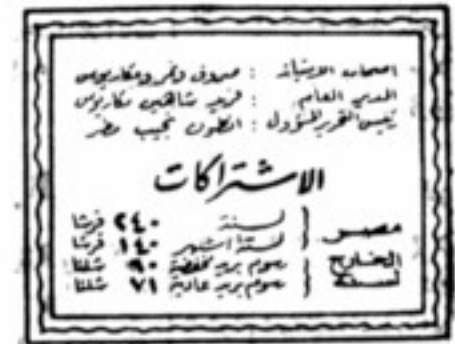 اصحاب الامتياز : صروف ونمر ومكاريوس
المدير العام : فريد شاهين مكاريوس
رئيس التحرير المسؤول : انطون نجيب مطر
الاشتراكات
مصر
لسنة ٢٤٠ قرشا
لستة اشهر ١٤٠ قرشا
الخارج لسنة
رسوم بريد مخفضة ٩٠ شلنا
رسوم بريد عادية ٧١ شلنا